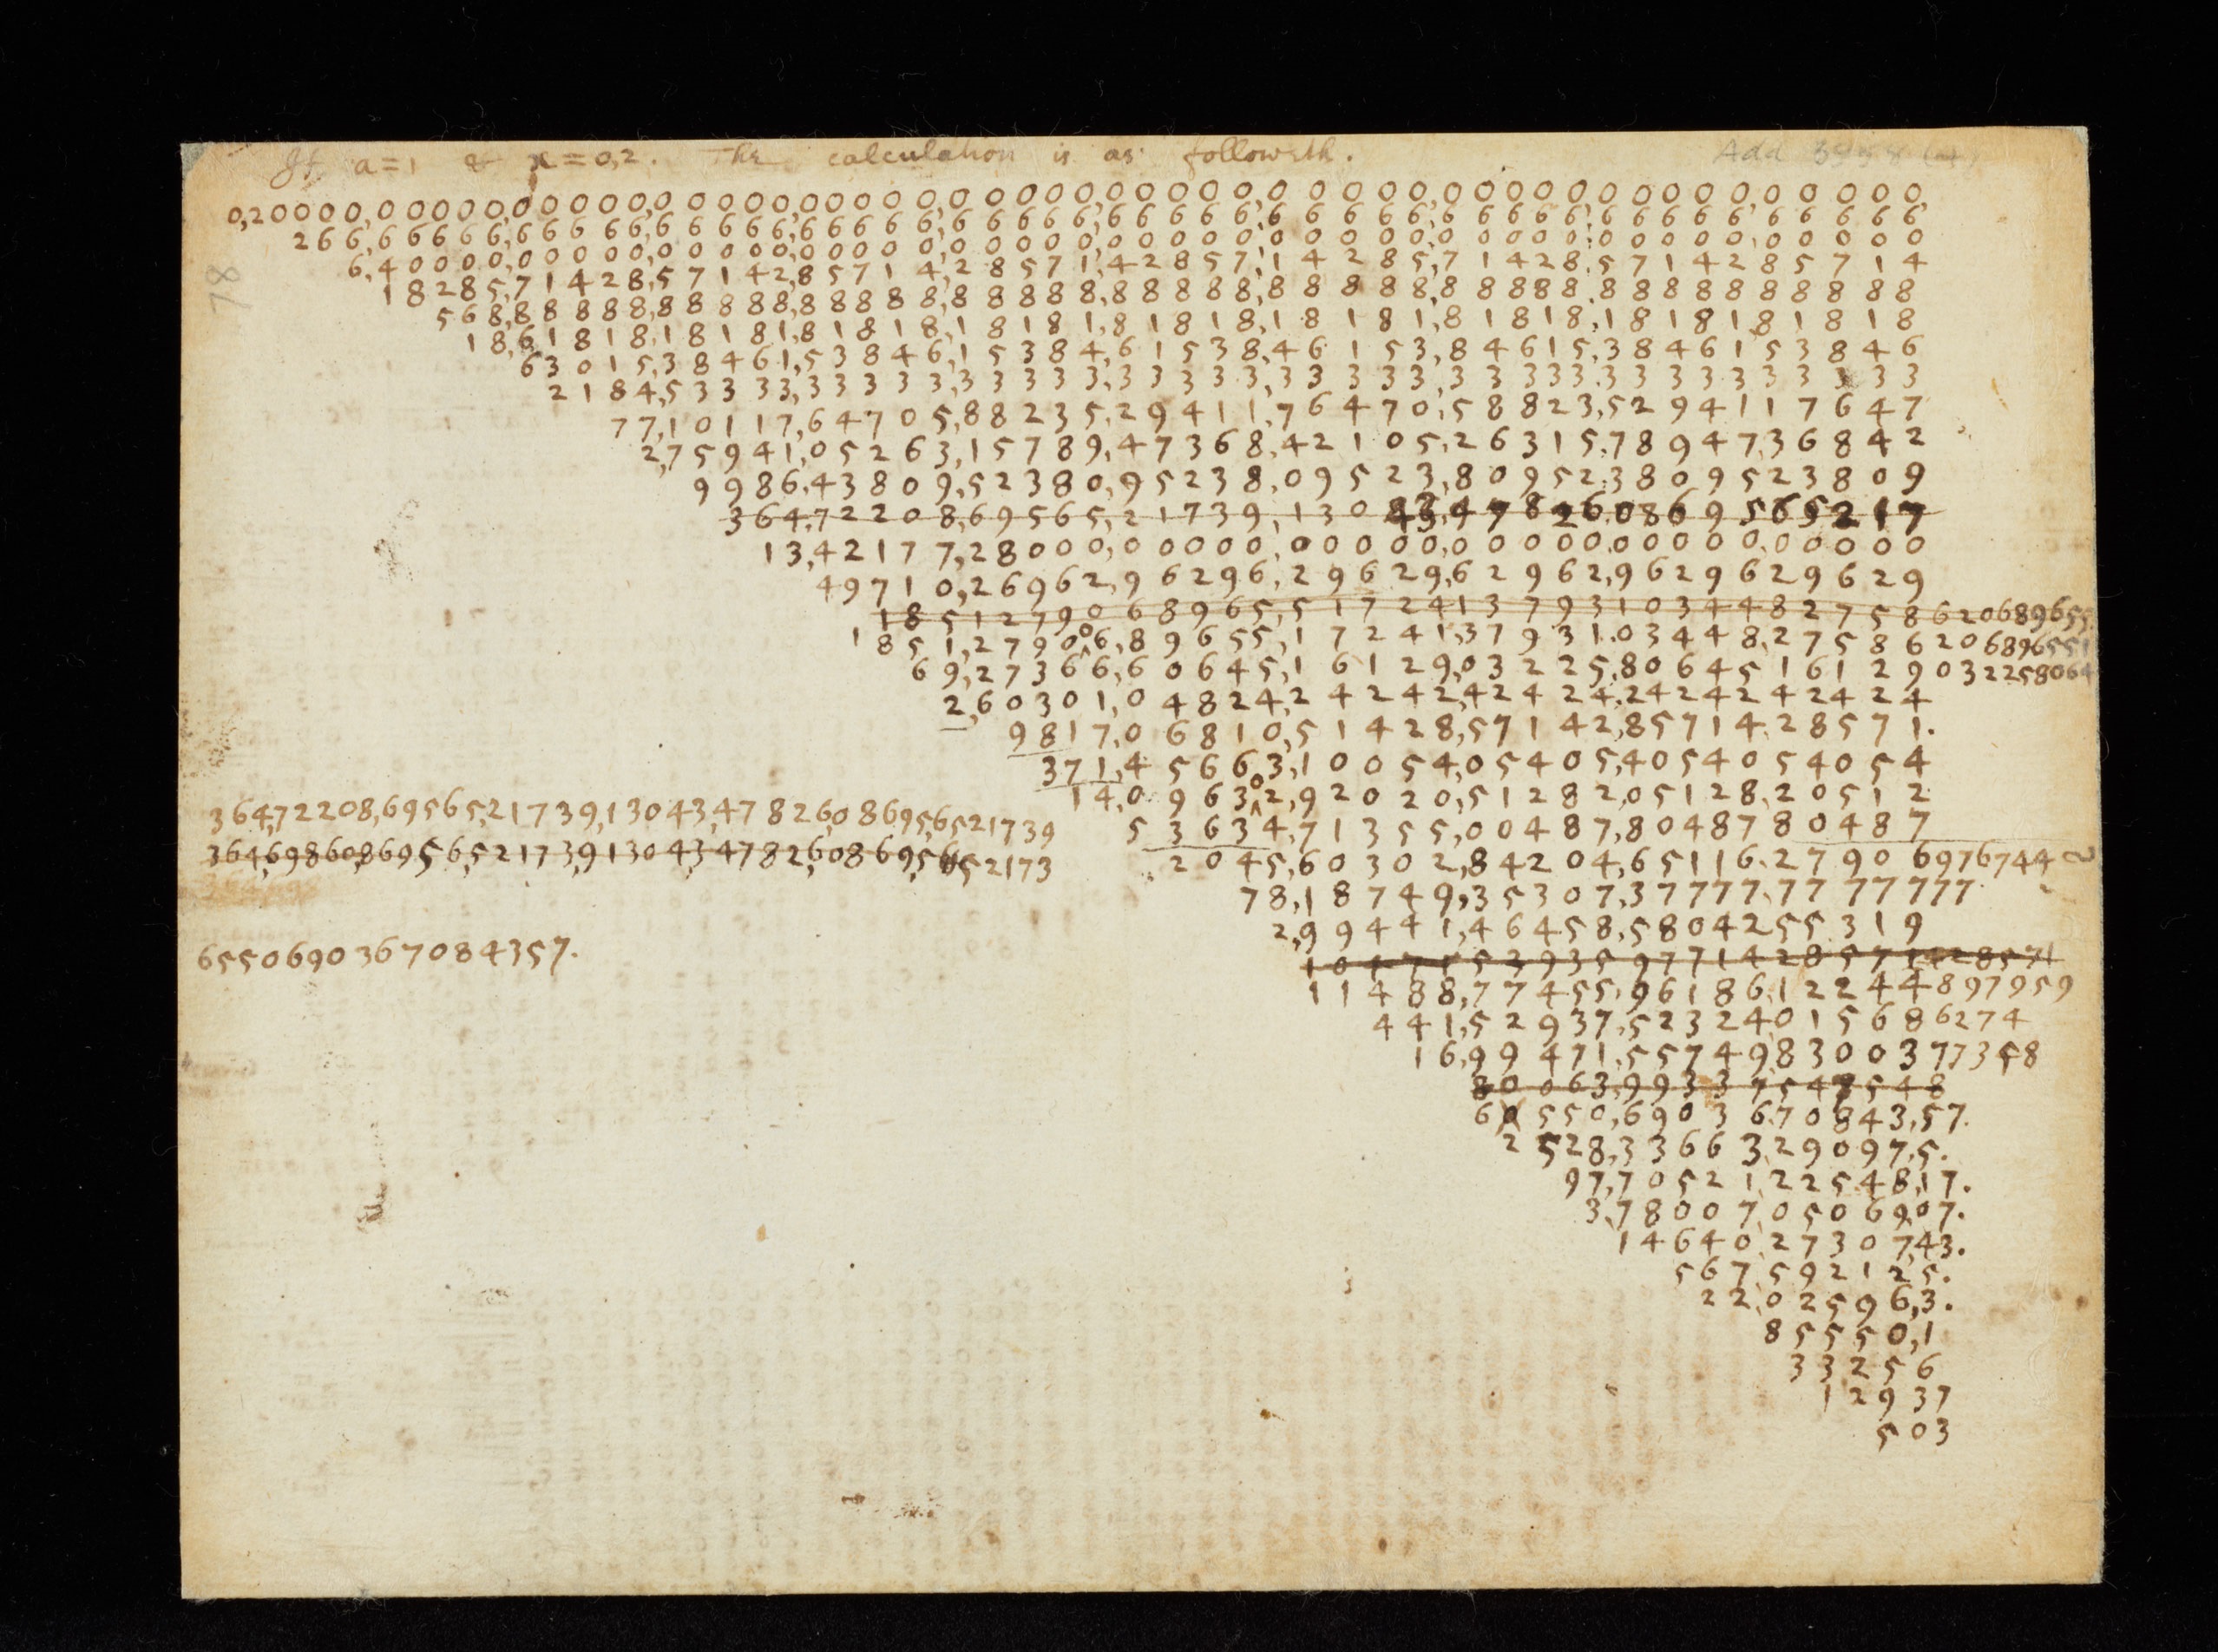 If a=1 & x=0,2. The calculation is as followeth.
0,20000,00000,00000,00000,00000,00000,00000,00000,00000,00000,00000,
266,66666,66666,66666,66666,66666,66666,66666,66666,66666,66666
6,40000,00000,00000,00000,00000,00000,00000,00000,00000,00000
18285,71428,57142,85714,28571,42857,14285,71428,57142 85714
568,88888,88888,88888,88888,88888,88888,88888,88888 88888
18,61818,18181,81818,18181,81818,18181,81818,18181 81818
63015,38461,53846,15384,61538,46153,84615,38461 53846
2184,53333,33333,33333,33333,33333,33333,33333 33333
77,10117,64705,88235,29411,76470,58823,52941 17647
2,75941,05263,15789,47368,42105,26315,78947,36842
9986,43809,52380,95238,09523,80952,38095 23809
364,72208,69565,21739,13043,47826,08695 65217
13,42177,28000,00000,00000,00000,00000,00000
49710,26962,96296,29629,62962,96296 29629
18512790689655172413793103448275862068965 5
1851,279006,89655,17241,37931,03448,275862068965 51
69,27366,60645,16129,03225,80645 16129032258064
2,60301,04824,24242,42424,24242 42424
9817,06810,51428,57142,85714 28571.
371,45663,10054,05405,40540 54054
14,096302,92020,51282,05128,20512
53634,71355,00487,80487 80487
2045,60302,84204,65116,27906976744
78,18749,35307,37777,7777777
2,99441,46458,58042 55319
10471539359771428571428571
11488,77455,96186,12244897959
441,52937,52324,01568 6274
16,99471,55749830037 7358
80063,9933754 8548
60550,69036708 43,57.
2528,33663 29097,5.
97,70521 22548,17.
3,78007 05069,07.
14640 27307,43.
567 59212,5.
22 02596,3.
85550,1
33256
12937
503
364,72208,69565,21739,13043,47826,08695,6521739
364,69860,8695652173913043478 26,08695,652173
6550690367084357.
78